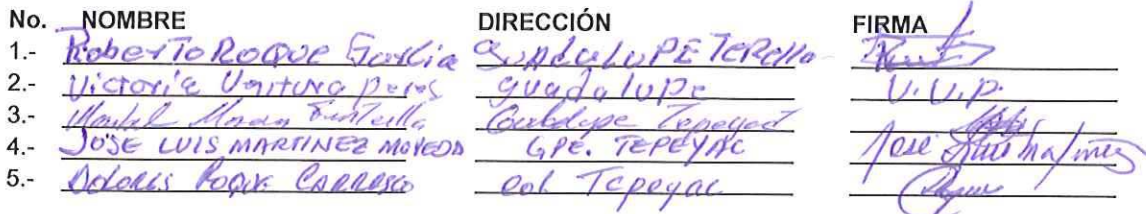 No. NOMBRE DIRECCIÓN FIRMA
1.- Roberto Roque García Guadalupe
2.- Victoria Ventura Guadalupe V.V.P.
3.- Moran Guadalupe Tepeyac
4.- JOSE LUIS MARTINEZ GPE. TEPEYAC José Luis Martínez
5.- Dolores Roque Carrasco Col Tepeyac